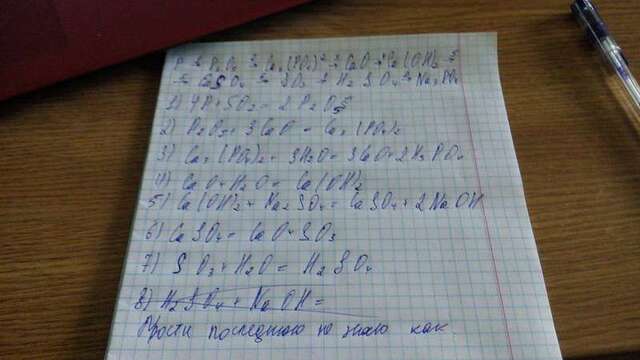 P → P₂O₅ → Ca₃(PO₄)² → CaO → Ca(OH)₂ →
→ CaSO₄ → SO₃ → H₂SO₄ → Na₃PO₄
1) 4P + 5O₂ = 2P₂O5
2) P₂O₅ + 3CaO = Ca₃(PO₄)₂
3) Ca₃(PO₄)₂ + 3H₂O = 3CaO + 2H₃PO₄
4) CaO + H₂O = Ca(OH)₂
5) Ca(OH)₂ + Na₂SO₄ = CaSO₄ + 2NaOH
6) CaSO₄ = CaO + SO₃
7) SO₃ + H₂O = H₂SO₄
8) H₂SO₄ + NaOH =
Прости последнюю не знаю как